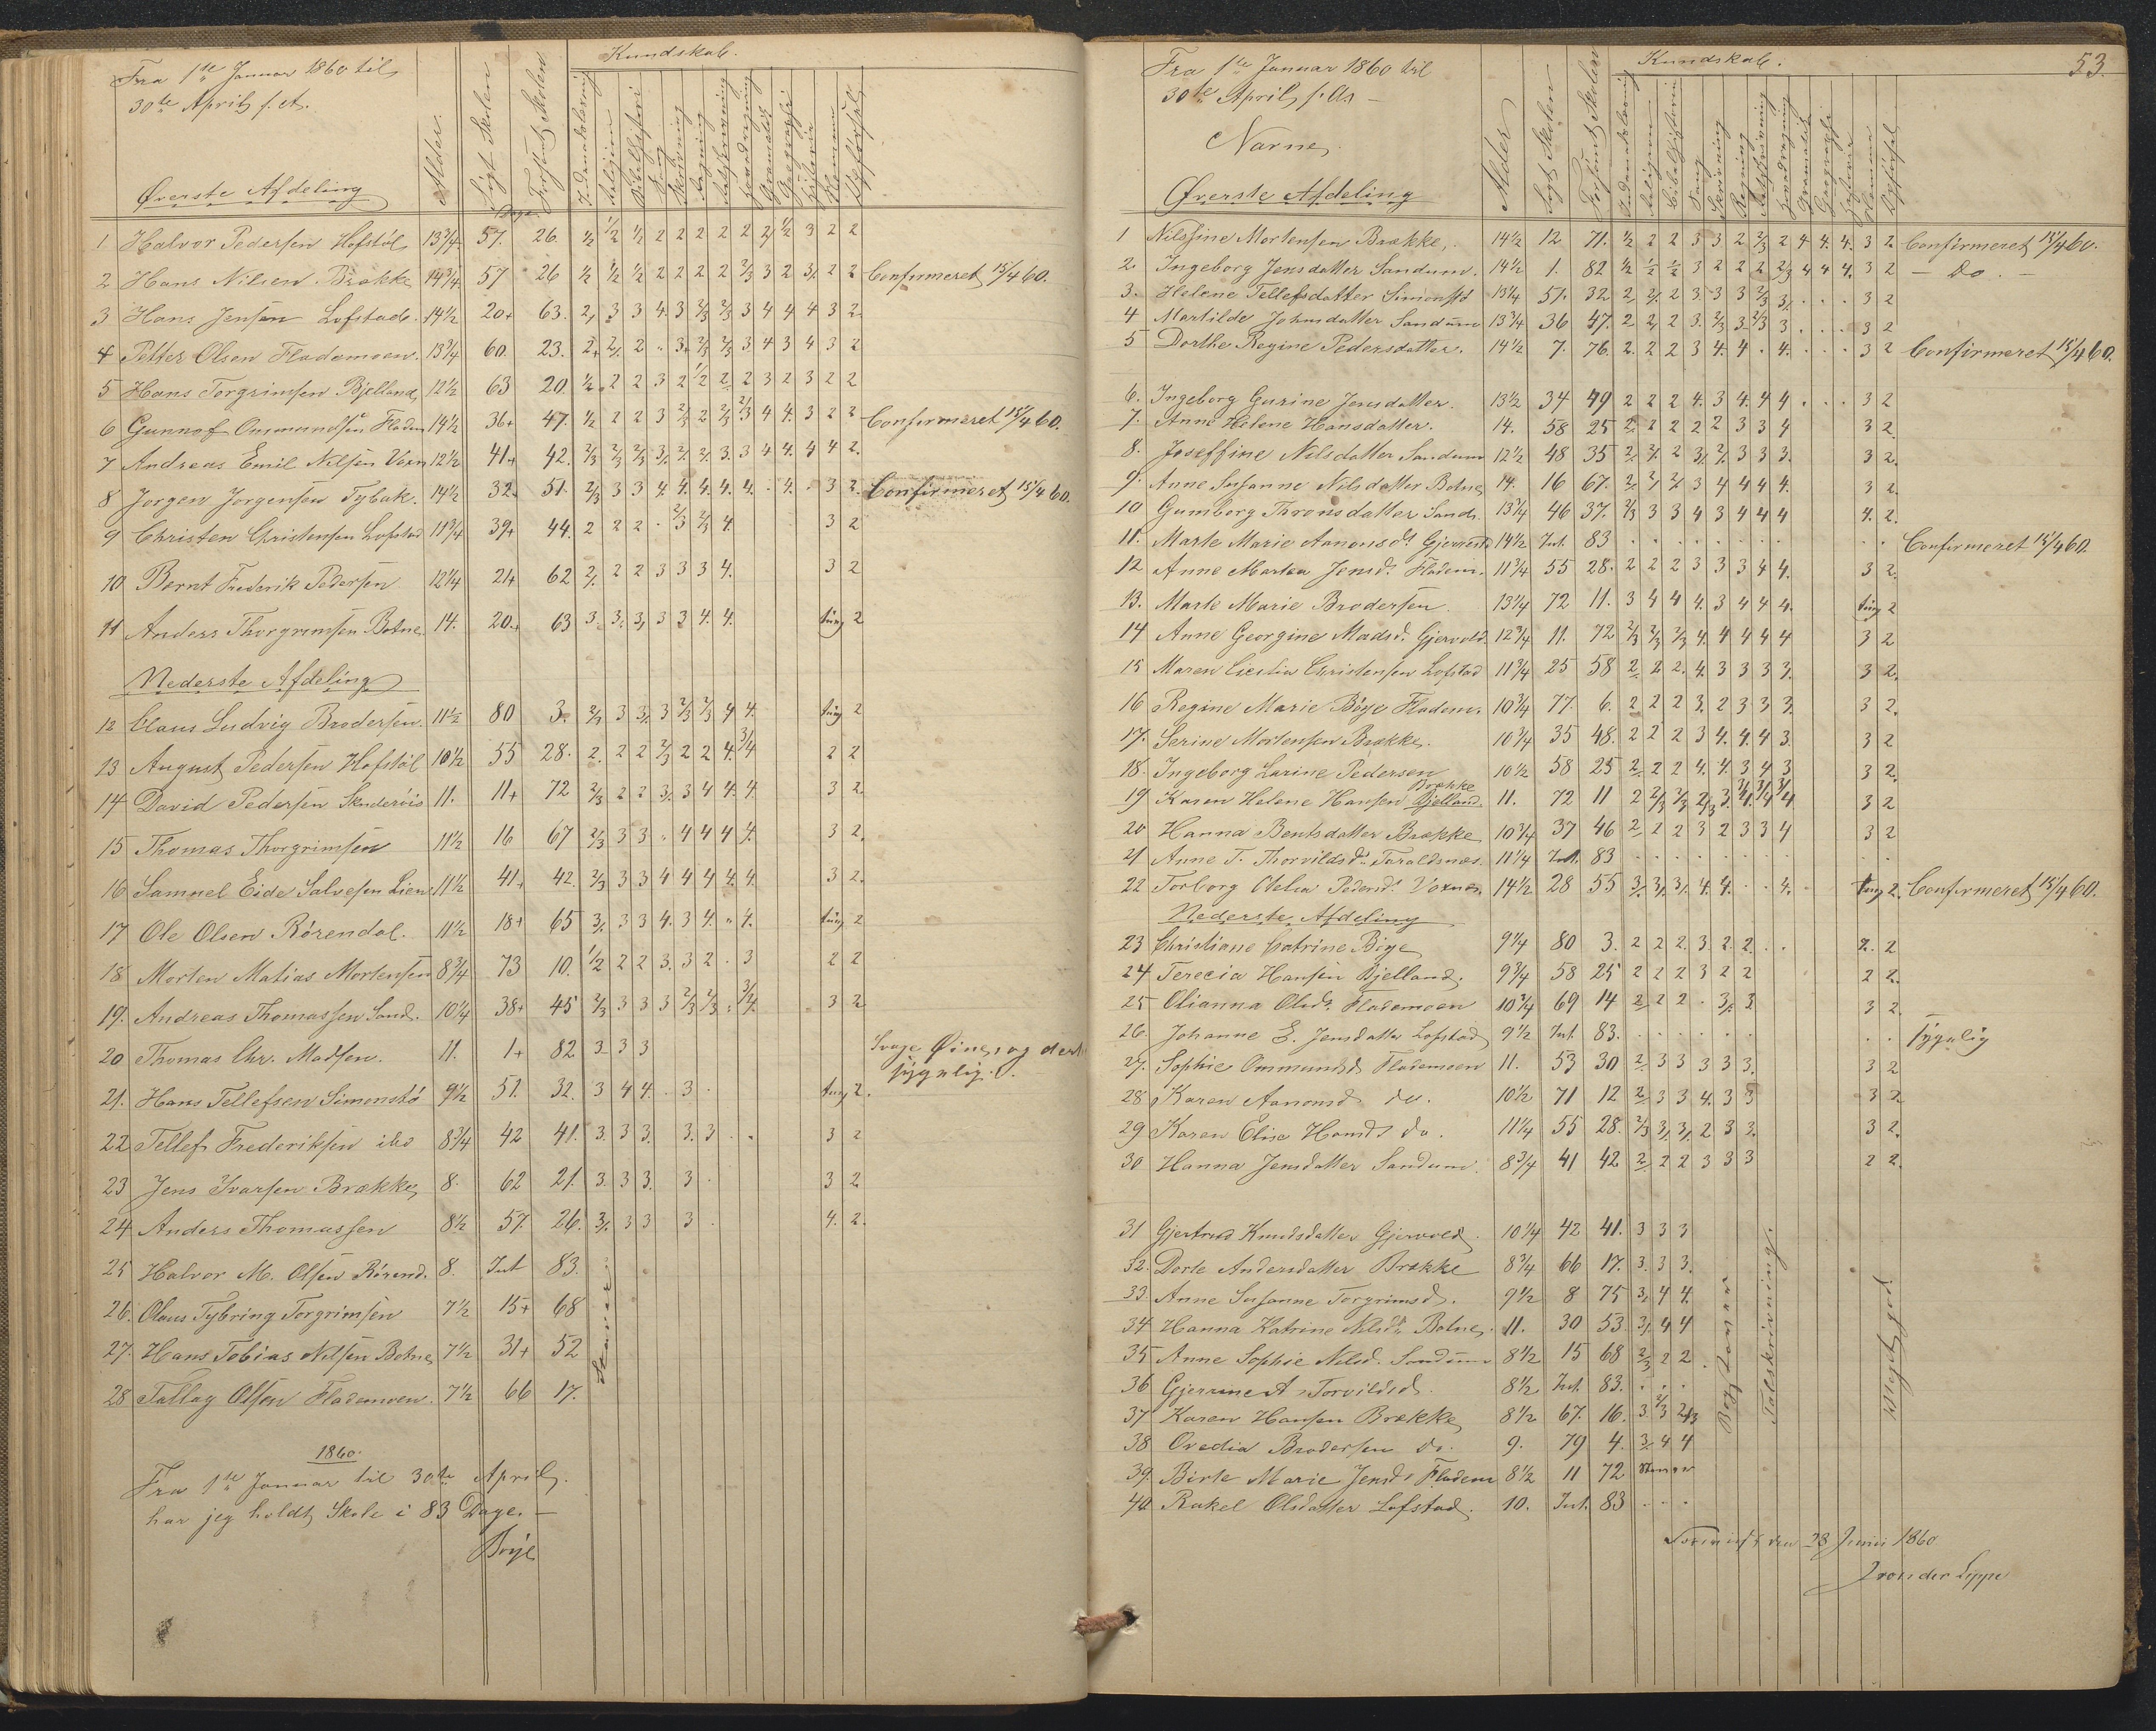 Fra 1te Januar 1860 til
30te April s. A.
Øverste Afdeling
Alder.
Søgt Skolen
Forsømt Skolen
Kundskab.
Indenadslæsning
Religion
Bibelhistori
Sang
Skrivning
Regning
Dage.
1 Halvor Pedersen Hofstøl 13 3/4 57. 26. 1/2 1/2 1/2 2 2 2 2 2 2/ 1/2 3 2 2
2 Hans Nilsen Brække 14 3/4 57 26 1/2 1/2 1/2 2 2 2 2 2/3 3 2 3/. 2 2 Confirmeret 15/4 60.
3 Hans Jensen Lofstad. 14 1/2 20+ 63. 2/. 3 3 4. 3 2/3 2/3 3 4 4 4 3 2
4 Petter Olsen Flademoen. 13 3/4 60. 23. 2+ 2/. 2 . 3+ 2/3 2/3 3 4 3 4 3 2
5 Hans Torgrimsen Bjelland 12 1/2 63 20. 1/2 2 2 3 2 1/2 2 2 3 2 3 2 2
6 Gunnof Ommundsen Fladem 14 1/2 36+ 47. 1/2 2 2 3 2/3 2 2/3 2/3 4 4. 3 2 2 Confirmeret 15/4 60.
7 Andreas Emil Nilsen Voxn 12 1/2 41+ 42. 2/3 2/3 2/3 3/. 2/. 2/. 3. 3 4 4. 4 4 2.
8 Jorgen Jorgensen Tybak. 14 1/2 32+ 51. 2/3 3 3 4. 4. 4. 4. 4. . 4. . 3 2. Confirmeret 15/4 60.
9 Christen Christensen Lofstad 11 3/4 39+ 44. 2 2 2 . 2/3 2/3 4. 3 2
10 Bernt Frederik Pedersen 12 1/4 21+ 62 2/. 2 2 3 3 3 4. 3 2
11 Anders Thorgrimsen Botne. 14. 20+ 63 3. 3. 3/ 3 3 4. 4. tung 2
Nederste Afdeling
12 Claus Ludvig Brodersen. 11 1/2 80 3. 2/3 3 3/. 3 2/3 2/3 4 4. tung 2
13 August Pedersen Hofstøl 10 1/2 55 28. 2. 2 2 2/3 2 2 4. 3/4 2 2
14 David Pedersen Skuderøis 11. 11+ 72 2/3 2 2 3/. 3 4 4. 4. 3 2.
15 Thomas Thorgrimsen 11 1/2 16 67 2/3 3 3 . 4 4 4 4. 3 2.
16 Samuel Eide Salvesen Lien 11 1/2 41+ 42. 2/3 3 3 4 4 4 4. 4. 3 2.
17 Ole Olsen Rørendal. 11 1/2 18+ 65 3/. 3 3 4. 3 4. " 4. tung 2
18 Morten Matias Mortensen 8 3/4 73 10. 1/2 2 2 3. 3 2 . 3 2 2
19. Andreas Thomassen Sand. 10 1/4 38+ 45 2/3 3 3 3 2/3 2/3 . 3/4. 3 2
20 Thomas Chr. Madsen. 11. 1+ 82 3 3 3 Svage Øine og derfor
sygelig.
21. Hans Tellefsen Simonstø 9 1/2 51. 32. 3 4 4. . 3 . tung 2.
22 Tellef Frederiksen ibd 8 3/4 42 41. 3. 3 3. 3. 3 . . 3 2
23 Jens Ivarsen Brække 8. 62 21. 3. 3 3. 3 . 3 2
24 Anders Thomassen 8 1/2 57. 26. 3/. 3 3 3 . 4. 2.
25 Halvor M. Olsen Rørend. 8. Int 83.
26. Olaus Tybring Torgrimsen 7 1/2 15+ 68
27. Hans Tobias Nilsen Botne 7 1/2 31+ 52
28 Tallag Olsen Flademoen. 7 1/2 66 17.
Staver
1860.
Fra 1te Januar til 30te April
har jeg holdt Skole i 83 Dage. —
Böye
53.
Fra 1te Januar 1860 til
30te April s. As —
Navne.
Øverste Afdeling
Alder
Søgt Skolen
Forsømt Skolen
Kundskab.
Indenadslæsning
Religion
Bibelhistorie
Sang
Skrivning
Regning
1 Nilsfine Mortensen Brække. 14 1/2 12 71. 1/2 2 2 3 3 2 2/3 2 4 4. 4. 3 2 Confirmeret 15/4 60.
2. Ingeborg Jensdatter Sandum. 14 1/2 1. 82 1/2 1/2 1/2 3 2 2 2 2/3 4 4 4. 3 2 — Do. —
3. Helene Tellefsdatter Simonstø 13 1/4 51. 32 2/ 2/. 2 3. 3 3 2/3 3/. . . . 3 2
4 Martilde Johnsdatter Sandum 13 3/4 36 47. 2 2/ 2 3. 2/3 3 2/3 3 . . . 3 2
5 Dorthe Regine Pedersdatter. 14 1/2 7. 76. 2. 2 2 3 4. 4 . 4. . . . 3 2 Confirmeret 15/4 60.
6. Ingeborg Gurine Jensdatter. 13 1/2 34 49 2 2 2 4. 3 4. 4 4 . . . 3 2
7. Anne Helene Hansdatter. 14. 58 25 2 2 2 2 2 3 3 4 3 2.
8. Joseffine Nilsdatter Sandum 12 1/2 48 35 2/. 2/. 2 3/. 2/. 3 3 3. 3 2.
9. Anne Susanne Nilsdatter Botne 14. 16 67. 2/. 2/ 2/ 3 4 4 4 4. 3 2.
10 Gumborg Thronsdatter Sands. 13 1/4 46 37. 2/3 3 3 4 3 4 4 4 4. 2.
11. Marte Marie Aanonsd. 14 1/2 Int. 83 . . . . . . . . . . Confirmeret 15/4 60.
12 Anne Martea Jensd. Fladem. 11 3/4 55 28. 2 2 2 3 3 3 4 4. 3 2.
13. Marte Marie Brodersen. 13 1/4 72 11. 3 4 4 4. 3 4 4 4. tung 2
14 Anne Georgine Madsd. Gjervold. 12 3/4 11. 72 2/3 2/3 2/3 4. 4 4 4 4 3 2
15 Maren Cicilia Christensen Lofstad 11 3/4 25 58 2 2 2. 4. 3 3 3 3. 3 2.
16 Regine Marie Böye Fladem. 10 3/4 77. 6. 2 2 2 3. 2 3 3 3. 3 2.
17. Serine Mortensen Brække. 10 3/4 35 48. 2 2 2 3 4. 4. 4 3 3 2
18. Ingeborg Larine Pedersen 10 1/2 58 25 2 2 2 4. 4. 3 4 3 3 2.
Brække
19 Karen Helene Hansen Bjelland. 11. 72 11 2 2/3 2/3 2/3 3. 3/4. 3/4 3/4 3 2
20 Hanna Bentsdatter Brække 10 3/4 37 46 2 2 2 3 2 3 3 4 3 2
21 Anne T. Thorvildsd. Taraldsnes. 11 1/4 Int. 83 . . . . . . . . . .
22 Torborg Olelea Pedersd. Voxnes. 14 1/2 28 55 3/. 3/. 3/. 4. 4. . . 4. tung 2. Confirmeret 15/4 60.
Nederste Afdeling
23 Christiane Catrine Böye 9 1/4 80 3. 2 2 2. 3. 2. 2. . . 2. 2
24 Terecia Hansen Bjelland. 9 3/4 58 25 2 2 2 3 2 2 2 2.
25 Olianna Olsd. Flademoen 10 3/4 69 14 2 2 2 . 3/. 3 3 2.
26. Johanne E. Jensdatter Lofstad 9 1/2 Int. 83. . . . . . . . . Sygelig
27. Sophie Ommundsd Flademoen 11. 53 30 2 3 3 3 3 3. 3 2
28 Karen Aanonsd do. 10 1/2 71 12 2 3 3 4. 3 3 3 2
29 Karen Elise Hansd. do. 11 1/4 55 28. 2/3 3/. 3/. 2 3 3. 3 2.
30 Hanna Jensdatter Sandum. 8 3/4 41 42 2 2 2 3 3 3 2 2.
31 Gjertrud Knudsdatter Gjervold. 10 1/4 42 41. 3 3 3
32. Dorte Andersdatter Brække 8 3/4 66 17. 3. 3 3.
33. Anne Susanne Torgrimsd. 9 1/2 8 75 3/. 4 4.
34 Hanna Katrine Nilsd. Botne. 11. 30 53. 3/. 4 4
35 Anne Sophie Nilsd. Sandum 8 1/2 15 68 2/3 2 2
36 A Torvildsd. 8 1/2 Int. 83. . . .
37 Karen Hansen Brække 8 1/2 67. 16. 3 2/3 2/3
38 Ovedia Brodersen do. 9. 79 4. 3/. 4 4
39. Birte Marie Jensd. Fladem 8 1/2 11 72. Staver
40. Rakel Olsdatter Lofstad. 10. Int. 83 . . .
Bogstaver
Talskrivning.
Meget god.
den 28 Juni 1860
J von der Lippe